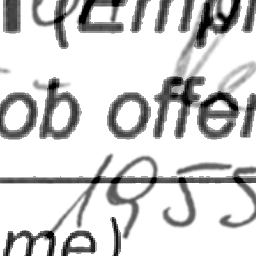 (Empl
ob offer
1955
me)